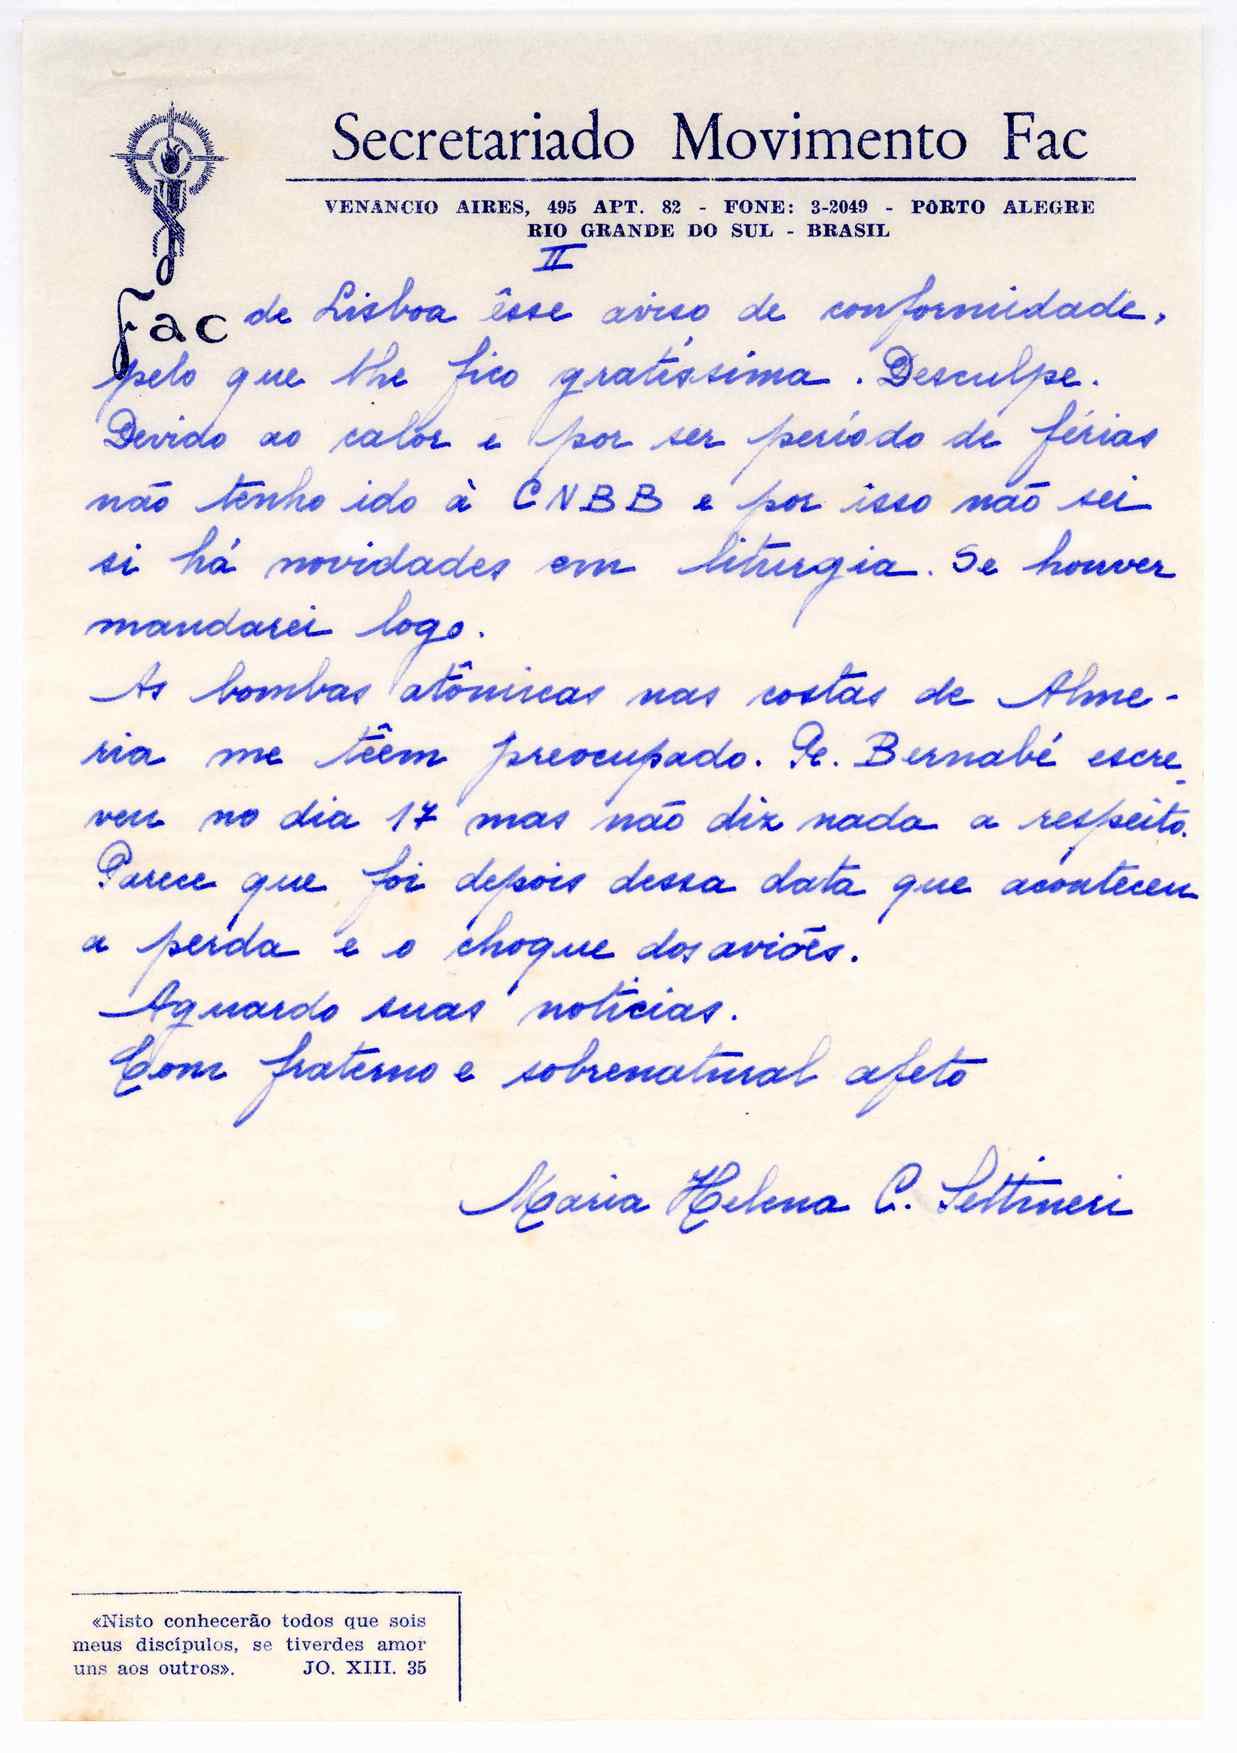 Secretariado Movimento Fac
VENANCIO AIRES, 495 APT. 82 - FONE: 3-2049 - PÔRTO ALEGRE
RIO GRANDE DO SUL - BRASIL
II
Fac
de Lisboa êsse aviso de conformidade,
pelo que lhe fico gratíssima. Desculpe.
Devido ao calor e por ser período de férias
não tenho ido à CNBB e por isso não sei
si há novidades em liturgia. Se houver
mandarei logo.
As bombas atômicas nas costas de Alme-
ria me têem preocupado. Pe. Bernabé escre-
veu no dia 17 mas não diz nada a respeito.
Parece que foi depois dessa data que aconteceu
a perda e o choque dos aviões.
Aguardo suas notícias.
Com fraterno e sobrenatural afeto
Maria Helena C. Settineri
«Nisto conhecerão todos que sois
meus discípulos, se tiverdes amor
uns aos outros». JO. XIII. 35